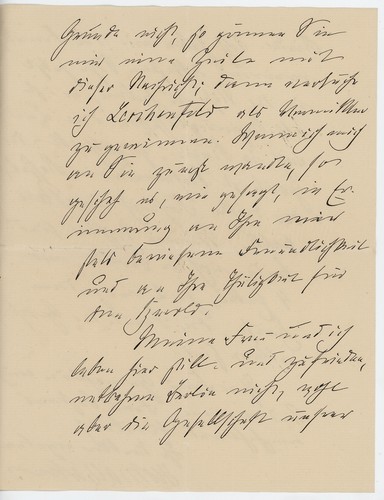 Grunde nicht, so gönnen Sie
mir eine Zeile mit
dieser Nachricht; dann versuche
ich Lerchenfeld als Vermittler
zu gewinnen. Wenn ich mich
an Sie zuerst wandte, so
geschah es, wie gesagt, in Er-
innerung an Ihre mir
stets bewiesene Freundlichkeit
und an Ihre Thätigkeit für
den Herold.
Meine Frau und ich
leben hier still und zufrieden,
entbehren Berlin nicht, wohl
aber die Gesellschaft unserer